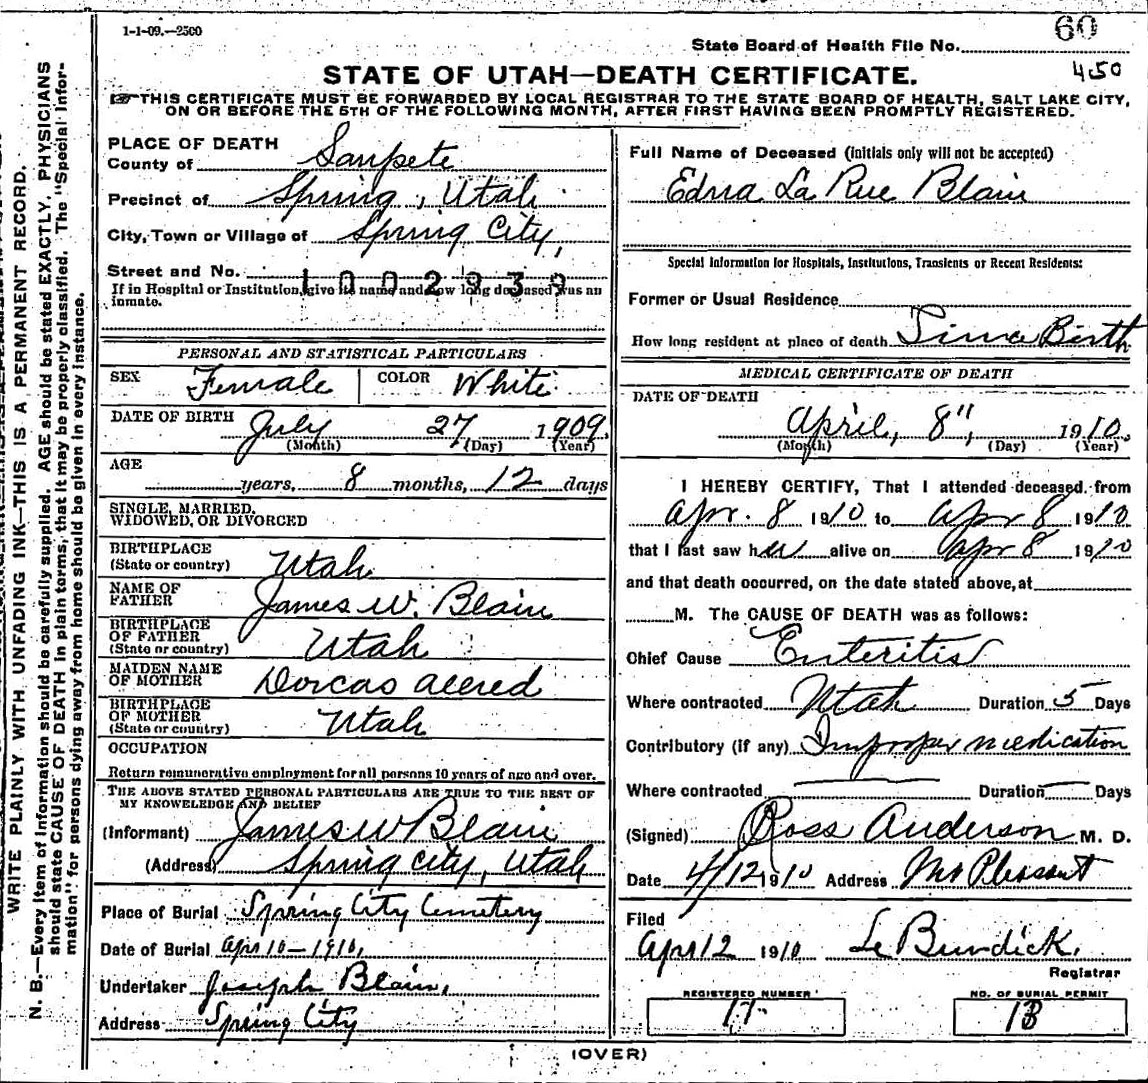 1-1-09.—2500
60
State Board of Health File No.
450
STATE OF UTAH—DEATH CERTIFICATE.
☞THIS CERTIFICATE MUST BE FORWARDED BY LOCAL REGISTRAR TO THE STATE BOARD OF HEALTH, SALT LAKE CITY,
ON OR BEFORE THE 5TH OF THE FOLLOWING MONTH, AFTER FIRST HAVING BEEN PROMPTLY REGISTERED.
PLACE OF DEATH
County of Sanpete
Precinct of Spring, Utah
City, Town or Village of Spring City,
Street and No. 1002939
If in Hospital or Institution, give its name and how long deceased was an
inmate.
PERSONAL AND STATISTICAL PARTICULARS
SEX Female COLOR White
DATE OF BIRTH July 27 1909.
(Month) (Day) (Year)
AGE
years, 8 months, 12 days
SINGLE, MARRIED,
WIDOWED, OR DIVORCED
BIRTHPLACE
(State or country) Utah
NAME OF
FATHER James W. Blain
BIRTHPLACE
OF FATHER
(State or country) Utah
MAIDEN NAME
OF MOTHER Dorcas allred
BIRTHPLACE
OF MOTHER
(State or country) Utah
OCCUPATION
Return remunerative employment for all persons 10 years of age and over.
THE ABOVE STATED PERSONAL PARTICULARS ARE TRUE TO THE BEST OF
MY KNOWLEDGE AND BELIEF
(Informant) James W Blain
(Address) Spring City, Utah
Place of Burial Spring City Cemetery
Date of Burial Apr 10—1910,
Undertaker Joseph Blain,
Address Spring City
Full Name of Deceased (initials only will not be accepted)
Edna La Rue Blain
Special Information for Hospitals, Institutions, Transients or Recent Residents:
Former or Usual Residence
How long resident at place of death Since Birth
MEDICAL CERTIFICATE OF DEATH
DATE OF DEATH
April, 8", 1910.
(Month) (Day) (Year)
I HEREBY CERTIFY, That I attended deceased from
Apr. 8 1910 to Apr 8 1910
that I last saw her alive on Apr 8 1910
and that death occurred, on the date stated above, at
M. The CAUSE OF DEATH was as follows:
Chief Cause Enteritis
Where contracted Utah Duration 5 Days
Contributory (if any) Improper medication
Where contracted Duration Days
(Signed) Ross Anderson M. D.
Date 4/12 1910 Address Mt Pleasant
Filed
Apr 12 1910 Burdick,
Registrar
REGISTERED NUMBER
17
NO. OF BURIAL PERMIT
13
(OVER)
WRITE PLAINLY WITH UNFADING INK—THIS IS A PERMANENT RECORD.
N. B.—Every item of information should be carefully supplied. AGE should be stated EXACTLY. PHYSICIANS
should state CAUSE OF DEATH in plain terms, that it may be properly classified. The "Special Infor-
mation" for persons dying away from home should be given in every instance.